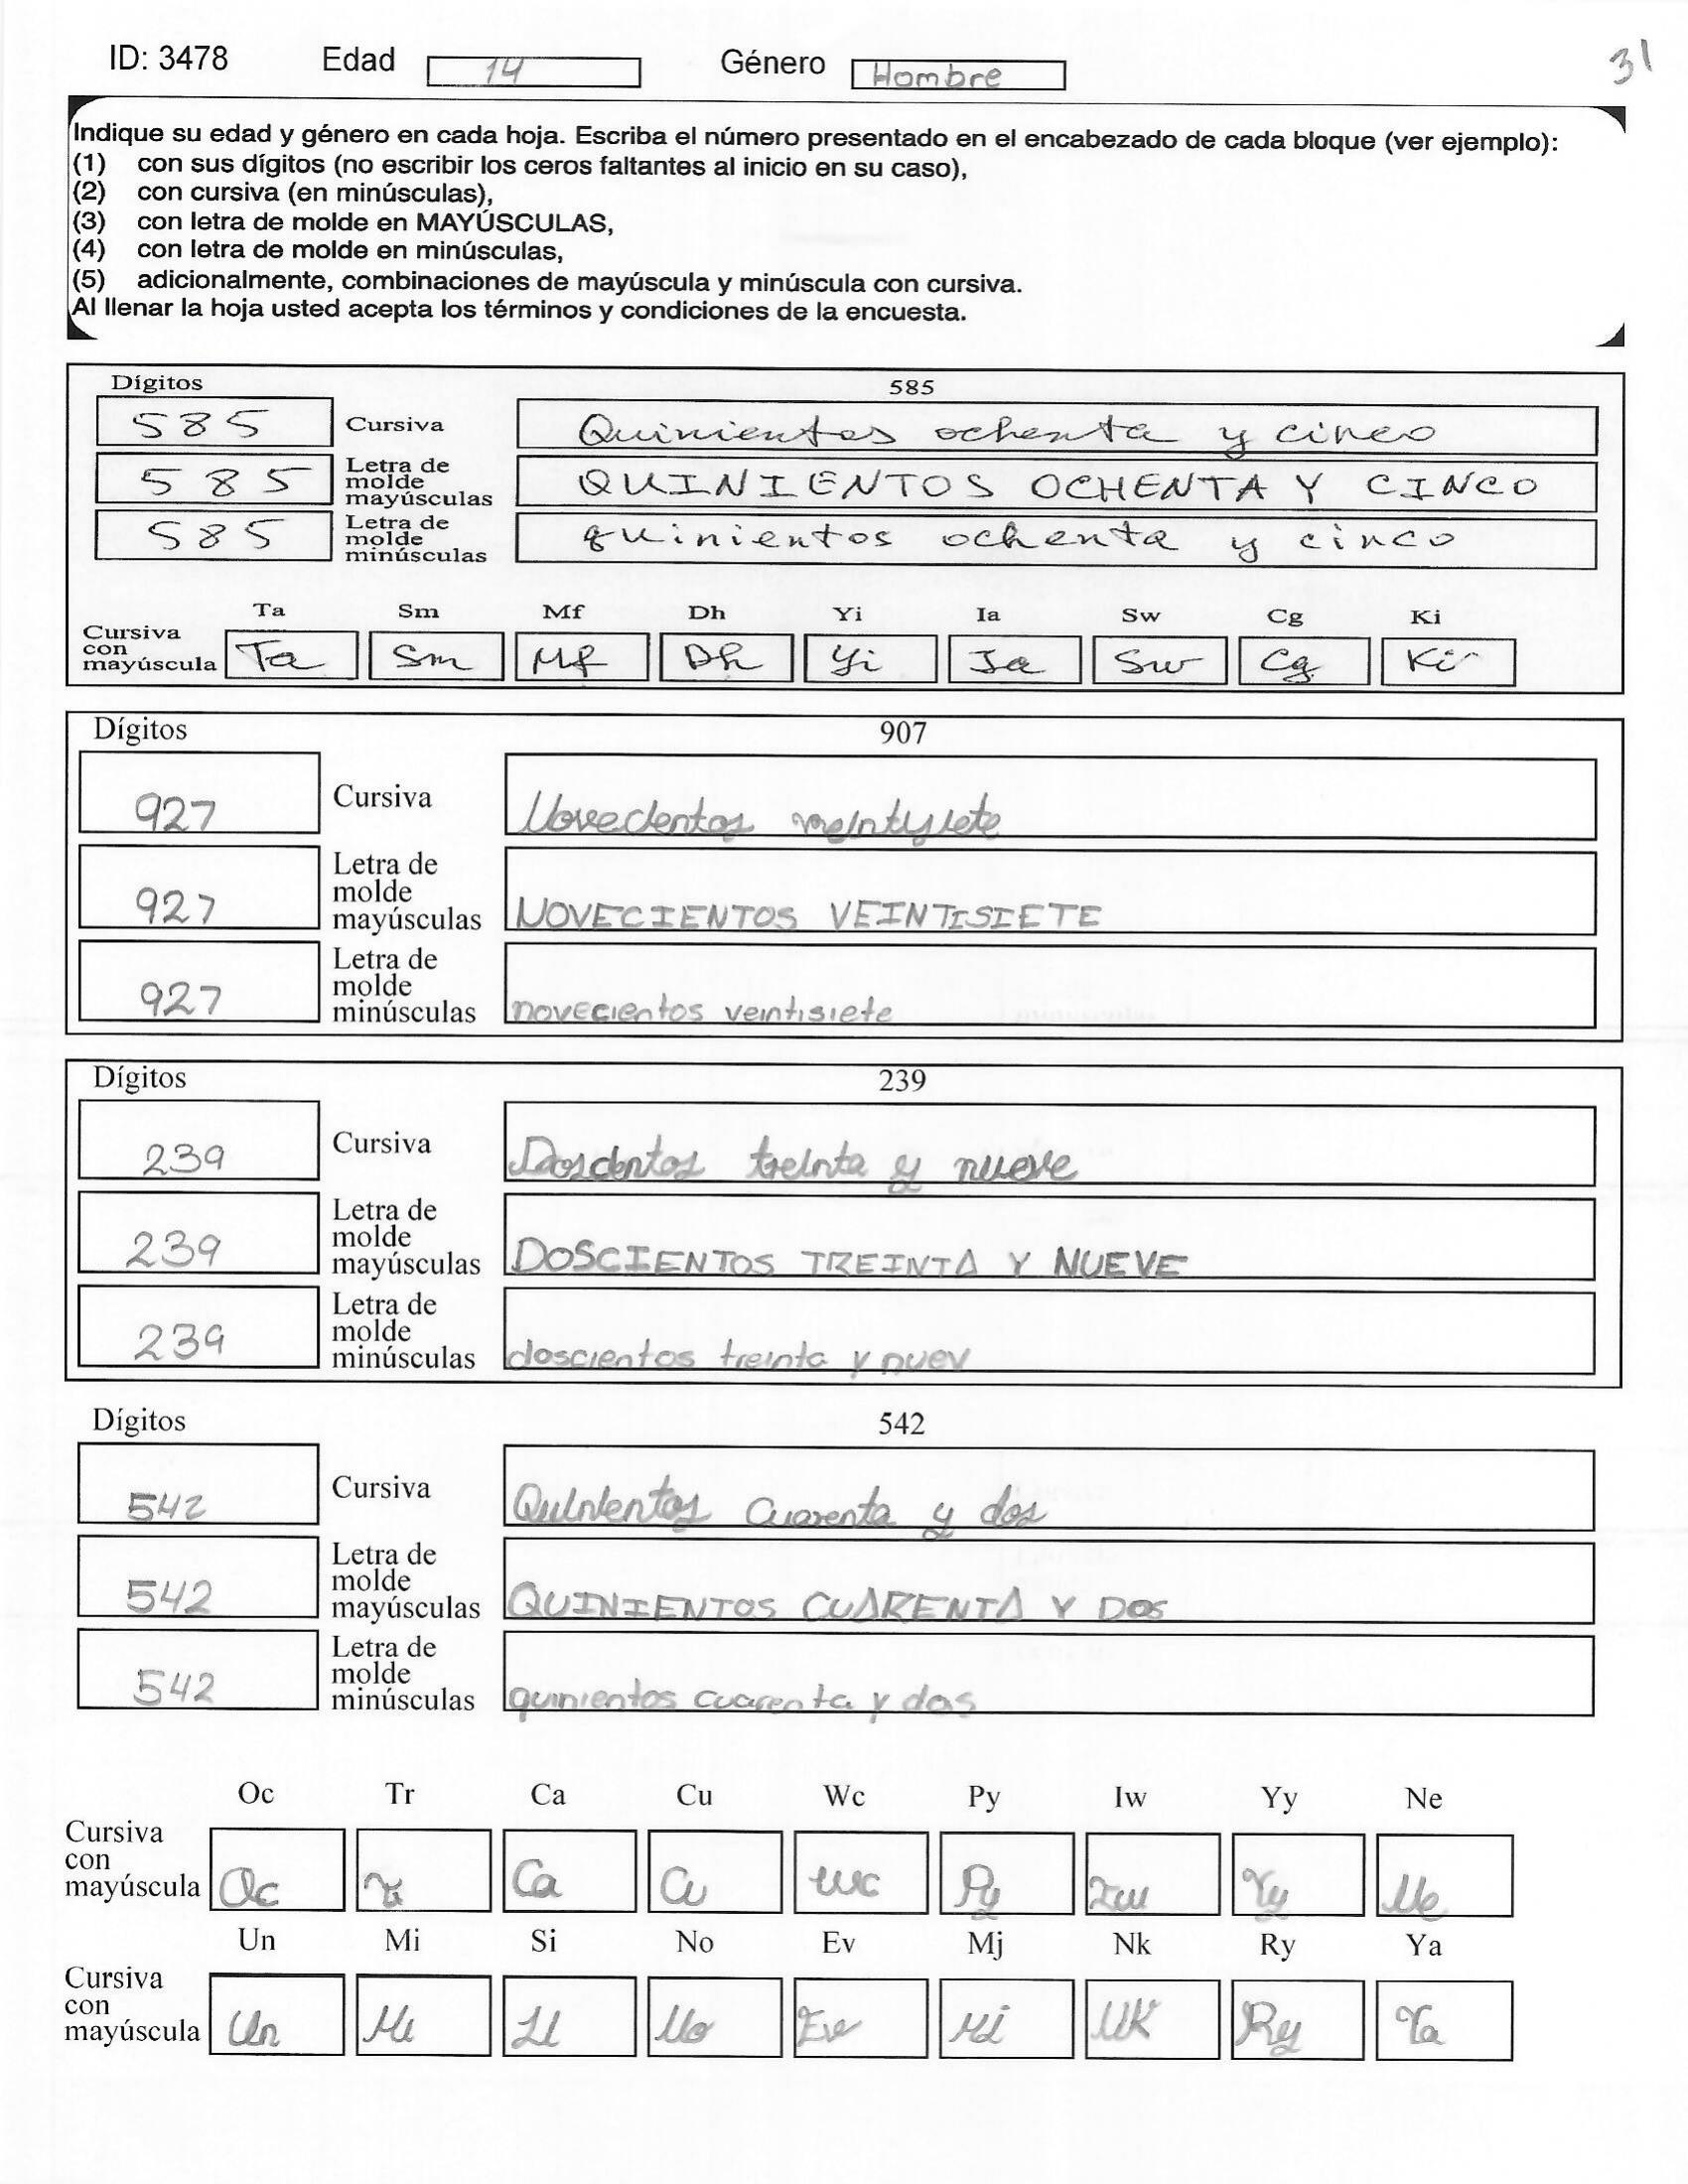 ID: 3478 Edad 14 Género Hombre 31
Indique su edad y género en cada hoja. Escriba el número presentado en el encabezado de cada bloque (ver ejemplo):
(1) con sus dígitos (no escribir los ceros faltantes al inicio en su caso),
(2) con cursiva (en minúsculas),
(3) con letra de molde en MAYÚSCULAS,
(4) con letra de molde en minúsculas,
(5) adicionalmente, combinaciones de mayúscula y minúscula con cursiva.
Al llenar la hoja usted acepta los términos y condiciones de la encuesta.
Dígitos 585
585 Cursiva Quinientos ochenta y cinco
585 Letra de molde mayúsculas QUINIENTOS OCHENTA Y CINCO
585 Letra de molde minúsculas quinientos ochenta y cinco
Ta Sm Mf Dh Yi Ia Sw Cg Ki
Cursiva con mayúscula Ta Sm Mf Dh Yi Ia Sw Cg Ki
Dígitos 907
927 Cursiva Novecientos veintisiete
927 Letra de molde mayúsculas NOVECIENTOS VEINTISIETE
927 Letra de molde minúsculas novecientos veintisiete
Dígitos 239
239 Cursiva Doscientos treinta y nueve
239 Letra de molde mayúsculas DOSCIENTOS TREINTA Y NUEVE
239 Letra de molde minúsculas doscientos treinta y nuev
Dígitos 542
542 Cursiva Quinientos cuarenta y dos
542 Letra de molde mayúsculas QUINIENTOS CUARENTA Y DOS
542 Letra de molde minúsculas quinientos cuarenta y dos
Oc Tr Ca Cu Wc Py Iw Yy Ne
Cursiva con mayúscula Oc Tr Ca Cu Wc Py Iw Yy Ne
Un Mi Si No Ev Mj Nk Ry Ya
Cursiva con mayúscula Un Mi Si No Ev Mj NK Ry Ya